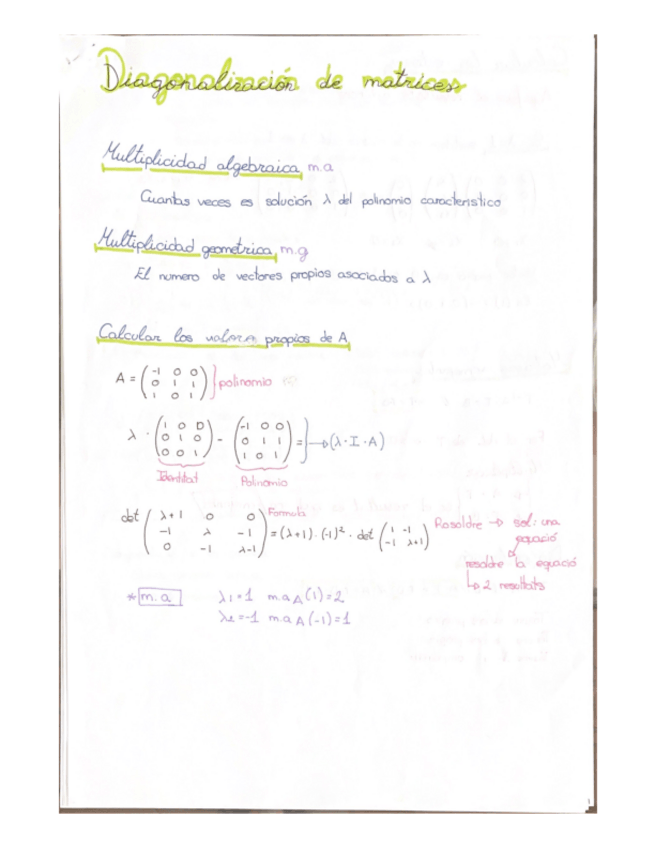 Diagonalización de matrices
Multiplicidad algebraica m.a
Cuantas veces es solución λ del polinomio caracteristico
Multiplicidad geometrica, m.g
El numero de vectores propios asociados a λ
Calcular los valores propios de A
A = ( -1 0 0 ; 0 1 1 ; 1 0 1 ) } polinomio
λ · ( 1 0 0 ; 0 1 0 ; 0 0 1 ) - ( -1 0 0 ; 0 1 1 ; 1 0 1 ) = } → (λ · I · A)
Identitat Polinomio
det ( λ+1 0 0 ; -1 λ -1 ; 0 -1 λ-1 ) Formula = (λ+1) · (-1)² · det ( 1 -1 ; -1 λ+1 ) Resoldre → sol: una
equació
resoldre la equació
↳ 2 resultats
* m.a λ1 = 1 m.a A (1) = 2
λ2 = -1 m.a A (-1) = 1